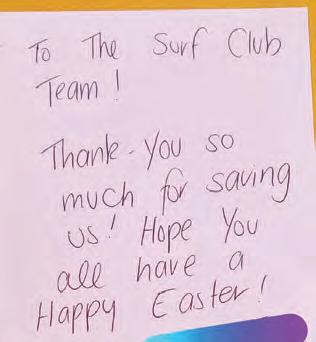 To The Surf Club
Team!
Thank-You so
much for saving
us! Hope You
all have a
Happy Easter!